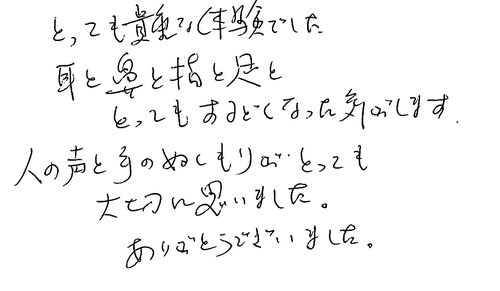 とっても貴重な体験でした
耳と鼻と指と足と
とってもするどくなった気がします.
人の声と手のぬくもりがとっても
大切に思いました。
ありがとうございました。